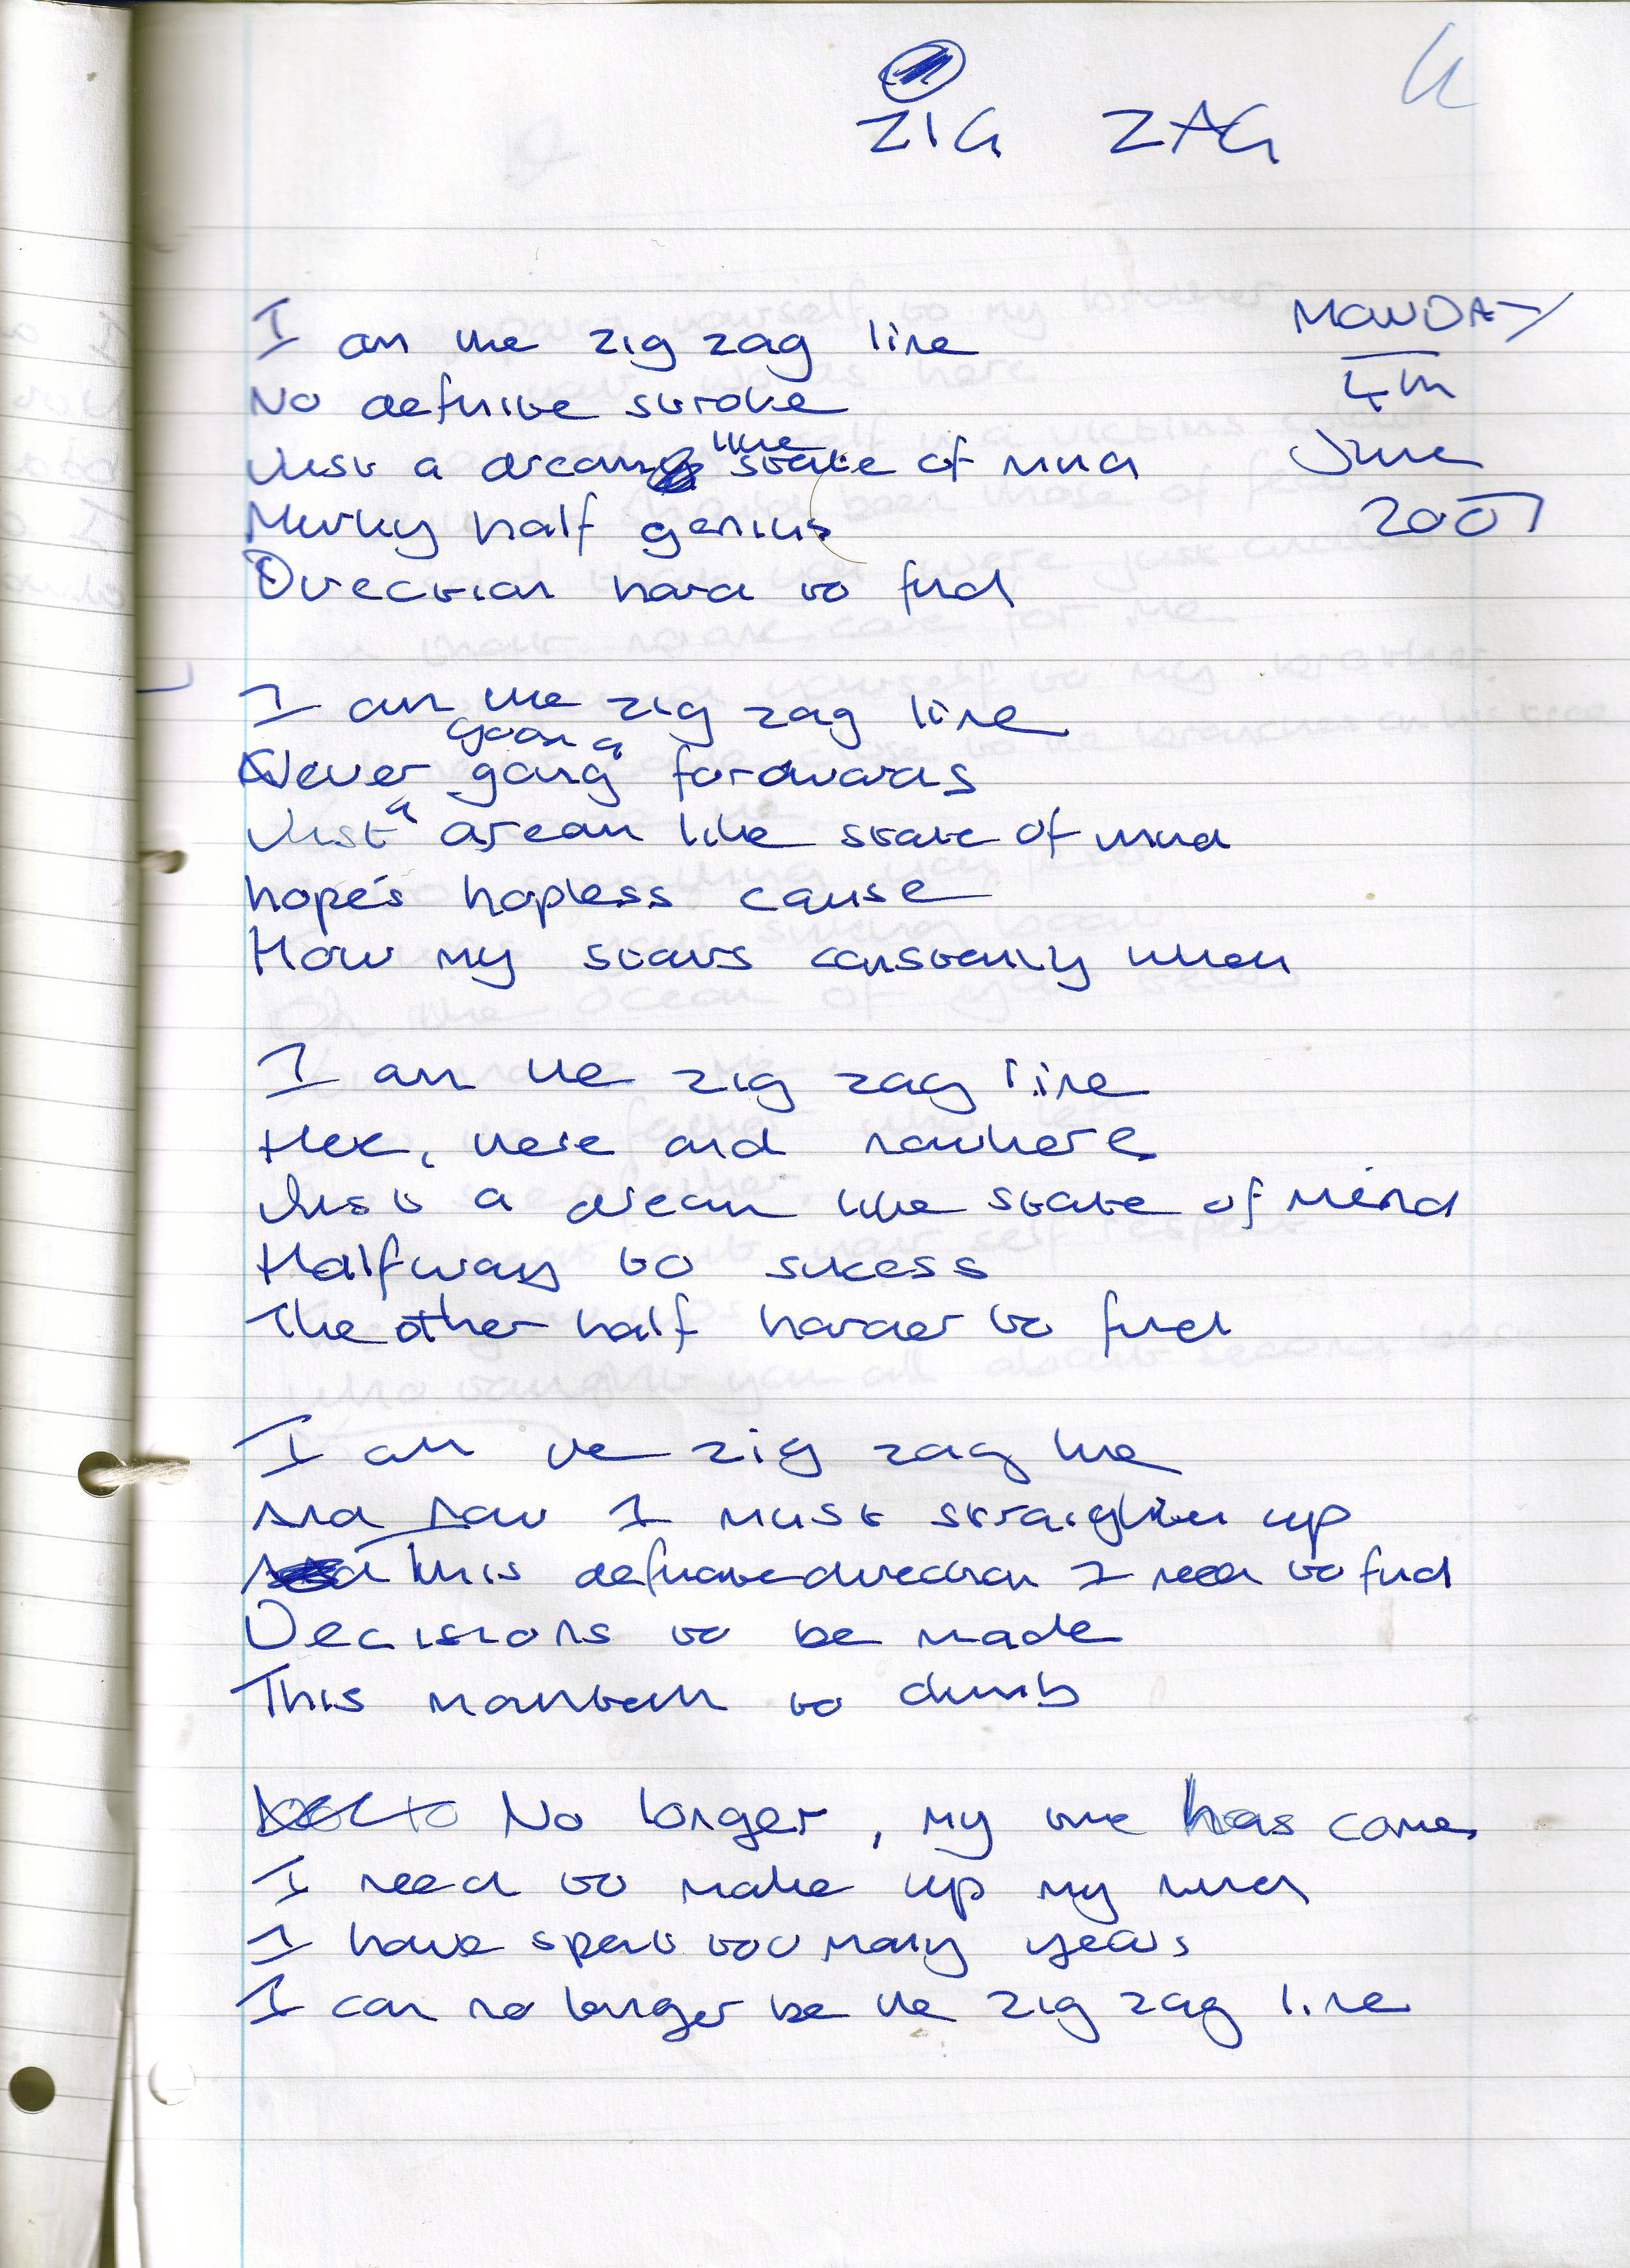 ZIG ZAG
MONDAY
4th
June
2007
I am the zig zag line
No definite stroke
Just a dream like state of mind
Murky half genius
Direction hard to find
I am the zig zag line
Never going forwards
Just a dream like state of mind
hope's hopless cause
How my stars constantly
I am the zig zag line
Here, there and nowhere
Just a dream like state of mind
Halfway to sucess
The other half harder to find
I am the zig zag line
And now I must straighten up
this definate direction I need to find
Decisions to be made
This mountain to climb
No longer, my time has come
I need to make up my mind
I have spent too many years
I can no longer be the zig zag line